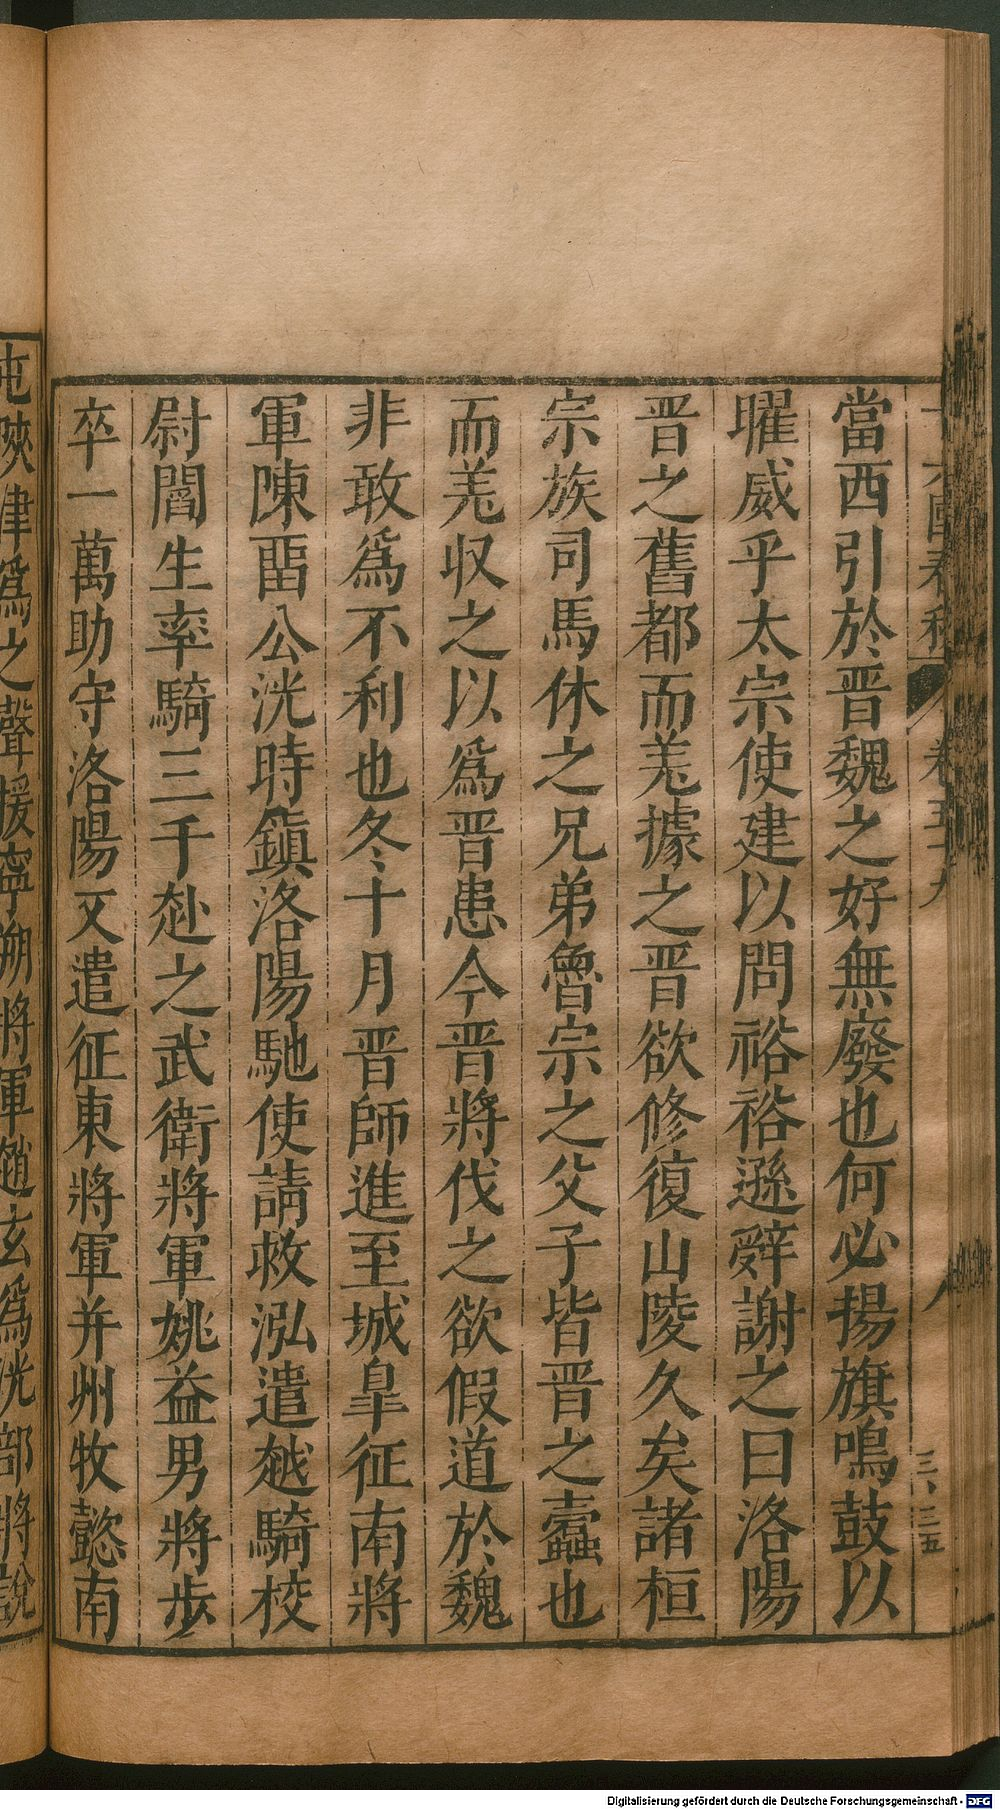 當西引於晉魏之好無廢也何必揚旗鳴鼓以
曜威乎太宗使建以問裕裕遜辤謝之曰洛陽
晉之舊都而羗據之晉欲修復山陵久矣諸桓
宗族司馬休之兄弟魯宗之父子皆晉之蠹也
而羗収之以爲晉患今晉將伐之欲假道於魏
非敢爲不利也冬十月晉師進至城臯征南將
軍陳畱公洸時鎭洛陽馳使請救泓遣越騎校
尉閻生率騎三千赴之武衛將軍姚益男將步
卒一萬助守洛陽又遣征東將軍并州牧懿南
屯陝津爲之聲援寧朔將軍趙玄爲洸部將說
卷五十九
三、三五
Digitalisierung gefördert durch die Deutsche Forschungsgemeinschaft - DFG